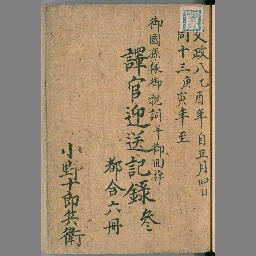 文政八乙酉年自五月四日
同十三庚寅年至
御國孫様御祝詞并御回称
譯官迎送記録 叅
都合六冊
小野十郎兵衛